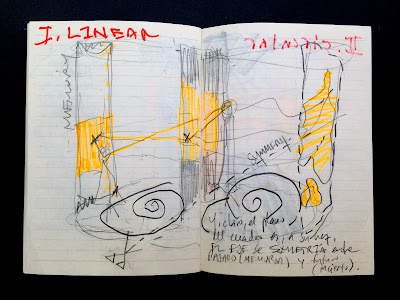 I. LINEAR
II
MEMORY
Y, claro, el plano
del cuadro es, a su vez,
EL EJE de SIMETRÍA entre
PASADO (MEMORIA) Y futuro
(muerte).